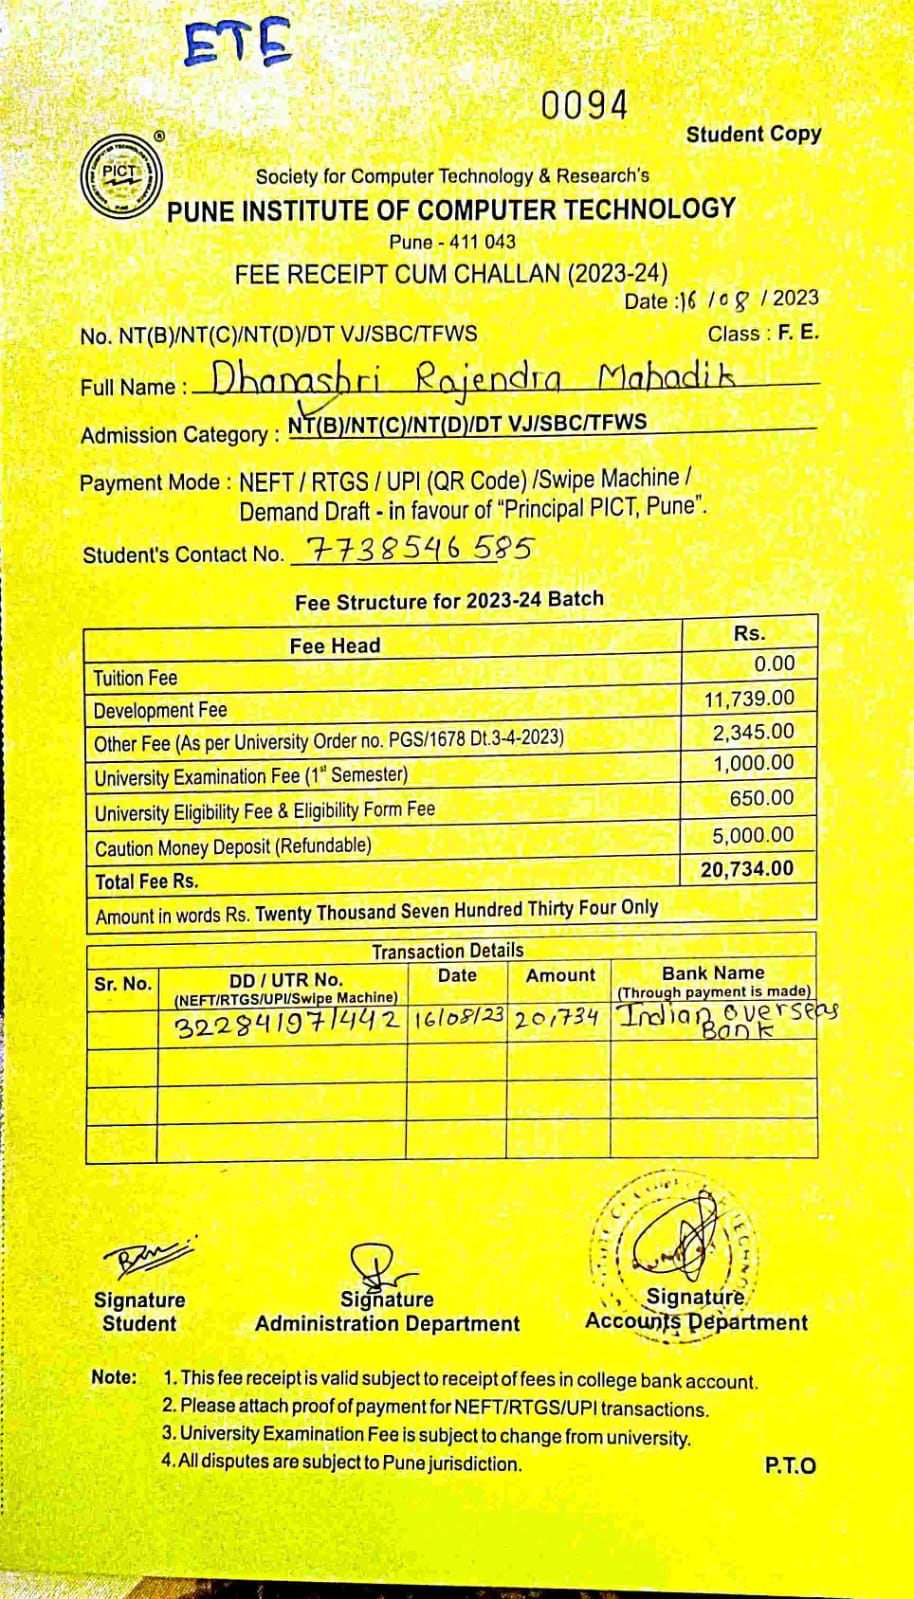 ETE
0094
Student Copy
PICT
®
Society for Computer Technology & Research's
PUNE INSTITUTE OF COMPUTER TECHNOLOGY
Pune - 411 043
FEE RECEIPT CUM CHALLAN (2023-24)
Date :16 / 08 / 2023
No. NT(B)/NT(C)/NT(D)/DT VJ/SBC/TFWS Class : F. E.
Full Name : Dhanashri Rajendra Mahadik
Admission Category : NT(B)/NT(C)/NT(D)/DT VJ/SBC/TFWS
Payment Mode : NEFT / RTGS / UPI (QR Code) /Swipe Machine /
Demand Draft - in favour of “Principal PICT, Pune”.
Student's Contact No. 7738546 585
Fee Structure for 2023-24 Batch
Fee Head Rs.
Tuition Fee 0.00
Development Fee 11,739.00
Other Fee (As per University Order no. PGS/1678 Dt.3-4-2023) 2,345.00
University Examination Fee (1st Semester) 1,000.00
University Eligibility Fee & Eligibility Form Fee 650.00
Caution Money Deposit (Refundable) 5,000.00
Total Fee Rs. 20,734.00
Amount in words Rs. Twenty Thousand Seven Hundred Thirty Four Only
Transaction Details
Sr. No. DD / UTR No. Date Amount Bank Name
(NEFT/RTGS/UPI/Swipe Machine) (Through payment is made)
322841971442 16/08/23 20,734 Indian overseas
Bank
Signature Signature Signature
Student Administration Department Accounts Department
Note: 1. This fee receipt is valid subject to receipt of fees in college bank account.
2. Please attach proof of payment for NEFT/RTGS/UPI transactions.
3. University Examination Fee is subject to change from university.
4. All disputes are subject to Pune jurisdiction. P.T.O